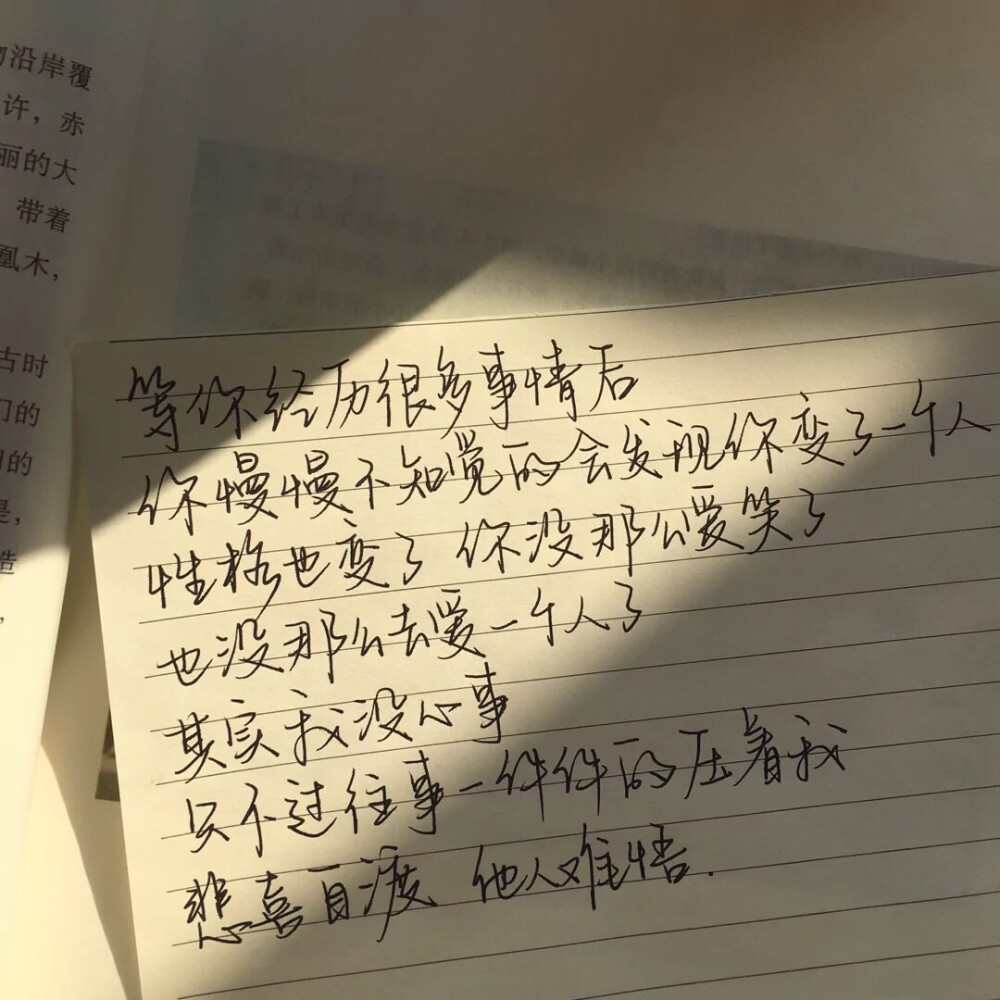 沿岸覆
许，赤
丽的大
带着
凰木，
古时
们的
的
是，
造
等你经历很多事情后
你慢慢不知觉的会发现你变了一个人
性格也变了 你没那么爱笑了
也没那么去爱一个人了
其实我没心事
只不过往事一件件的压着我
悲喜自渡 他人难悟.